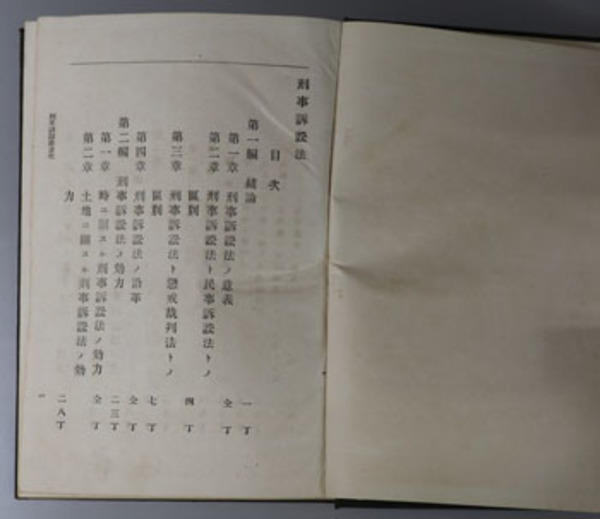 刑事訴訟法
目次
第一編 緒論 一丁
第一章 刑事訴訟法ノ意義 仝丁
第二章 刑事訴訟法ト民事訴訟法トノ
区別 四丁
第三章 刑事訴訟法ト懲戒裁判法トノ
区別 七丁
第四章 刑事訴訟法ノ沿革 仝丁
第二編 刑事訴訟法ノ効力 二三丁
第一章 時ニ関スル刑事訴訟法ノ効力 仝丁
第二章 土地ニ関スル刑事訴訟法ノ効
力 二八丁
一